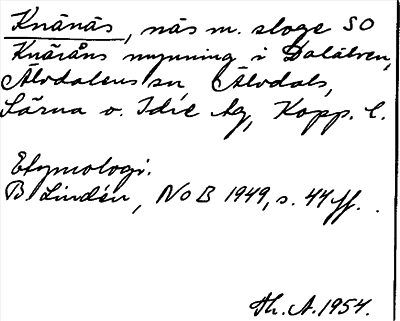 Knänäs, näs m. sloge SO
Knäråns mynning i Dalälven,
Älvdalens sn, Älvdals,
Särna o. Idre tg, Kopp. l.
Etymologi.
B Lindén, NoB 1949, s. 44 ff.
Th. A. 1954.